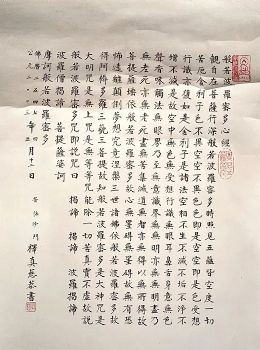 般若波羅蜜多心經
觀自在菩薩行深般若波羅蜜多時照見五蘊皆空度一切
苦厄舍利子色不異空空不異色色即是空空即是色受想
行識亦復如是舍利子是諸法空相不生不滅不垢不淨不
增不減是故空中無色無受想行識無眼耳鼻舌身意無色
聲香味觸法無眼界乃至無意識界無無明亦無無明盡乃至
無老死亦無老死盡無苦集滅道無智亦無得以無所得故
菩提薩埵依般若波羅蜜多故心無罣礙無罣礙故無有恐
怖遠離顛倒夢想究竟涅槃三世諸佛依般若波羅蜜多故
得阿耨多羅三藐三菩提故知般若波羅蜜多是大神咒是
大明咒是無上咒是無等等咒能除一切苦真實不虛故說
般若波羅蜜多咒即說咒曰 揭諦 揭諦 波羅揭諦
波羅僧揭諦 菩提薩婆訶
摩訶般若波羅蜜多
佛曆二五四七
公元二 年 月十一日
沙門 釋真慈恭書